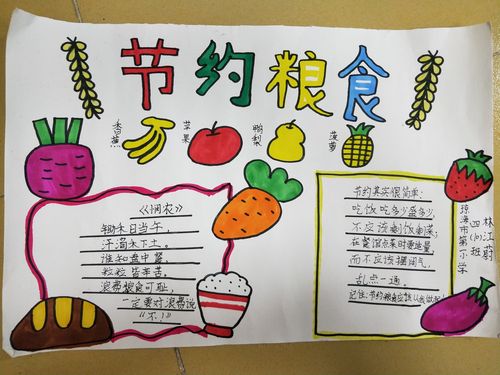 节约粮食
香蕉
苹果
鸭梨
菠萝
《悯农》
锄禾日当午，
汗滴禾下土。
谁知盘中餐，
粒粒皆辛苦。
浪费粮食可耻，
一定要对浪费说
“不！”
节约其实很简单：
吃饭吃多少盛多少，
不应该剩饭剩菜；
在餐馆点菜时要适量，
而不应该摆阔气，
乱点一通。
记住：节约粮食应该从我做起
琼海市第一小学
四（10）班
林江蔚